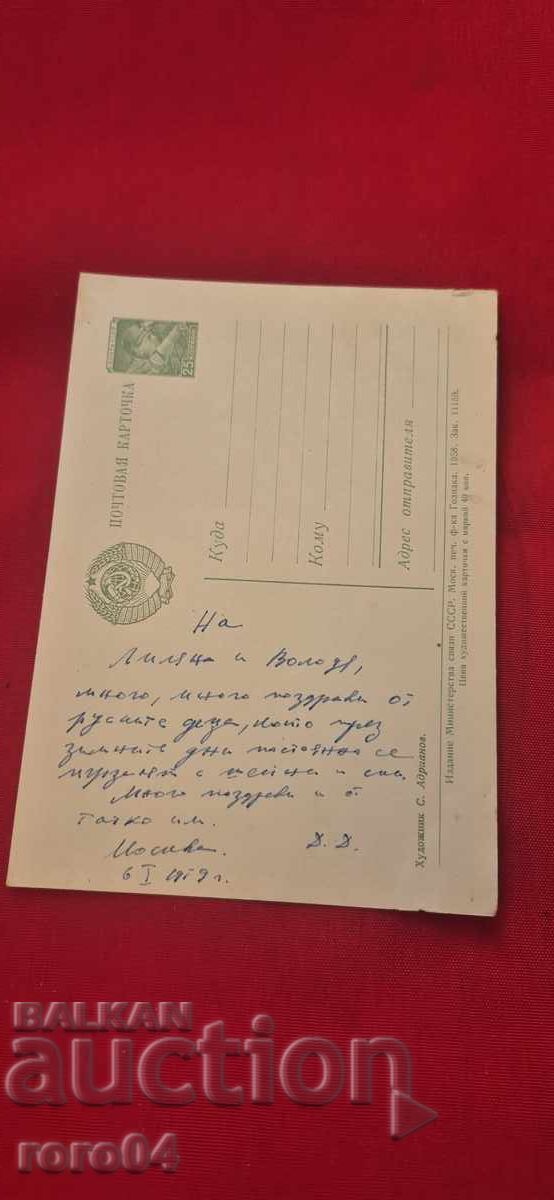 25
ПОЧТОВАЯ КАРТОЧКА
Куда
Кому
Адрес отправителя
На
Лиляна и Володя,
много, много поздрави от
руските деца, които през
зимните дни постоянно се
пързалят с шейни и ски.
Много поздрави и от
татко им.
Москва. Д. Д.
6 I 1959 г.
Художник С. Адрианов.
Издание Министерства связи СССР. Моск. печ. ф-ка Гознака. 1958. Зак. 11159.
Цена художественной карточки с маркой 40 коп.
BALKAN
auction
roro04